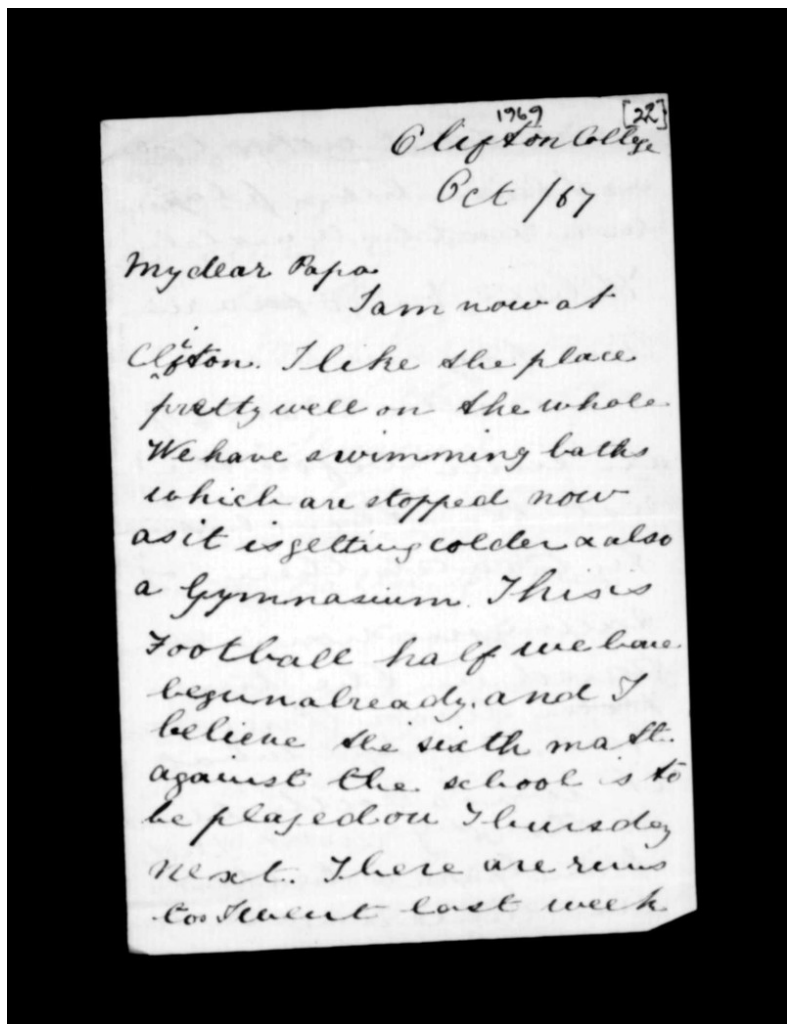 1969 [22]
Clifton College
Oct /67
My dear Papa
I am now at
Clifton. I like the place
pretty well on the whole
We have swimming baths
which are stopped now
as it is getting colder & also
a Gymnasium. This is
Football half we have
begun already. and I
believe the sixth match
against the school is to
be played on Thursday
next. There are runs
too I went last week